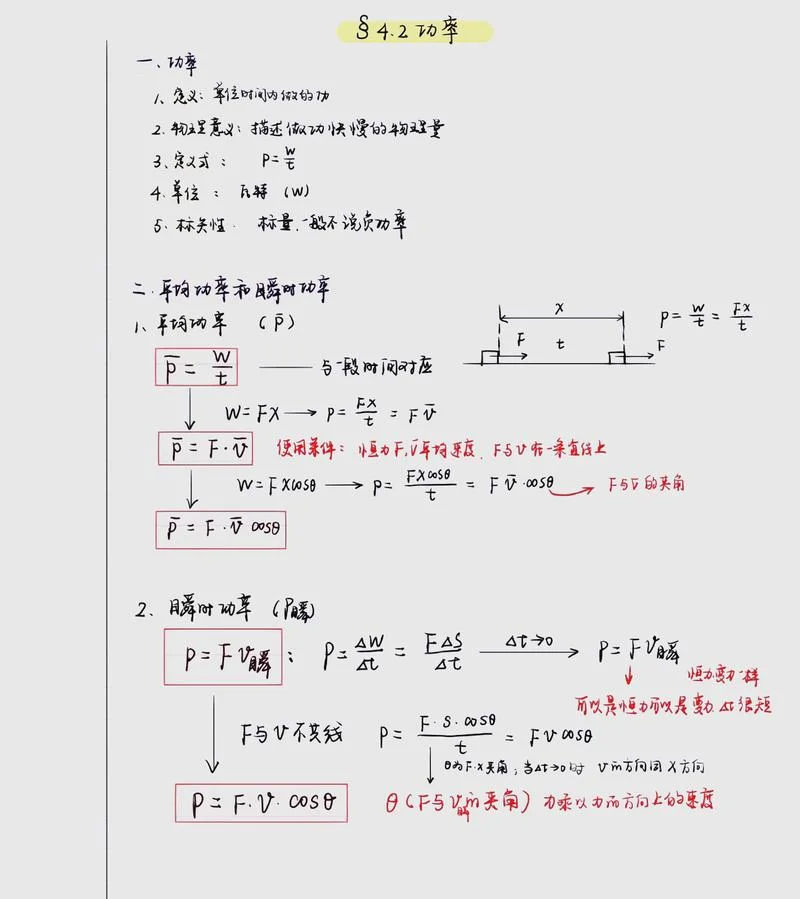 §4.2 功率
一、功率
1、定义：单位时间内做的功
2、物理意义：描述做功快慢的物理量
3、定义式： P=W/t
4、单位： 瓦特（W）
5、标矢性. 标量.一般不说负功率
二.平均功率和瞬时功率
1、平均功率 （P̄）
x
F t F
P=W/t=FX/t
P̄=W/t —— 与一段时间对应
W=FX→P=FX/t=Fv̄
P̄=F·v̄ 使用条件：恒力F,v̄平均速度.F与v在一条直线上
W=FXcosθ→P=FXcosθ/t=Fv̄·cosθ→F与v̄的夹角
P̄=F·v̄cosθ
2、瞬时功率（P瞬）
P=Fv瞬： P=ΔW/Δt=FΔS/Δt Δt→0→ P=Fv瞬
恒力变力一样
可以是恒力可以是变力.Δt很短
F与v不共线 P=F·S·cosθ/t=Fvcosθ
θ为F.X夹角；当Δt→0时 v的方向同X方向
P=F·v·cosθ θ（F与v瞬的夹角）力乘以力的方向上的速度